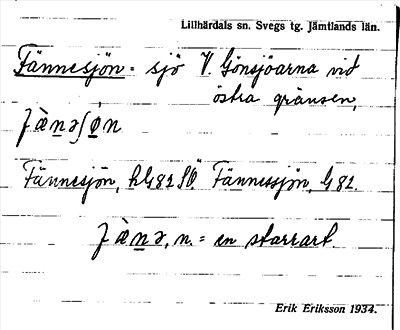 Lillhärdals sn. Svegs tg. Jämtlands län.
Fännesjön = sjö V. Gönsjöarna vid
östra gränsen,
Fännesjön, hG82 SÖ. Fännessjön, G 82.
n. = en starrart.
Erik Eriksson 1934.